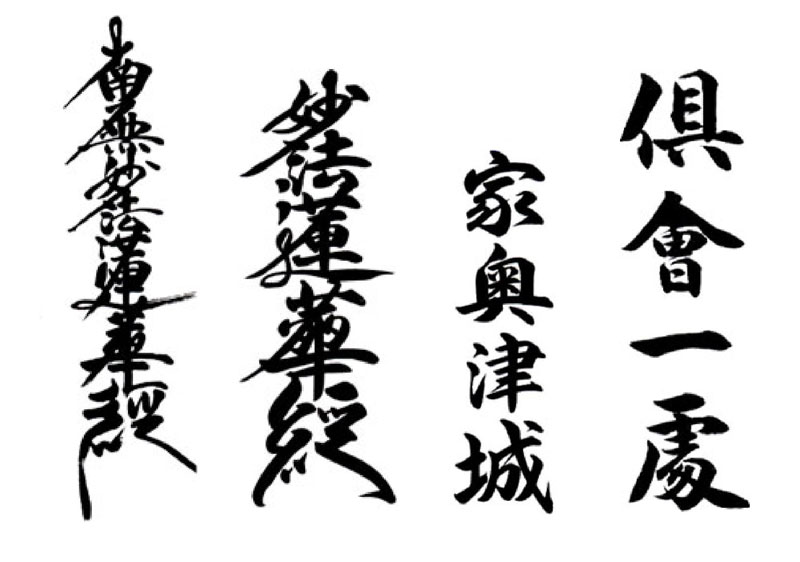 俱會一處
家奥津城
妙法蓮華経
南無妙法蓮華経